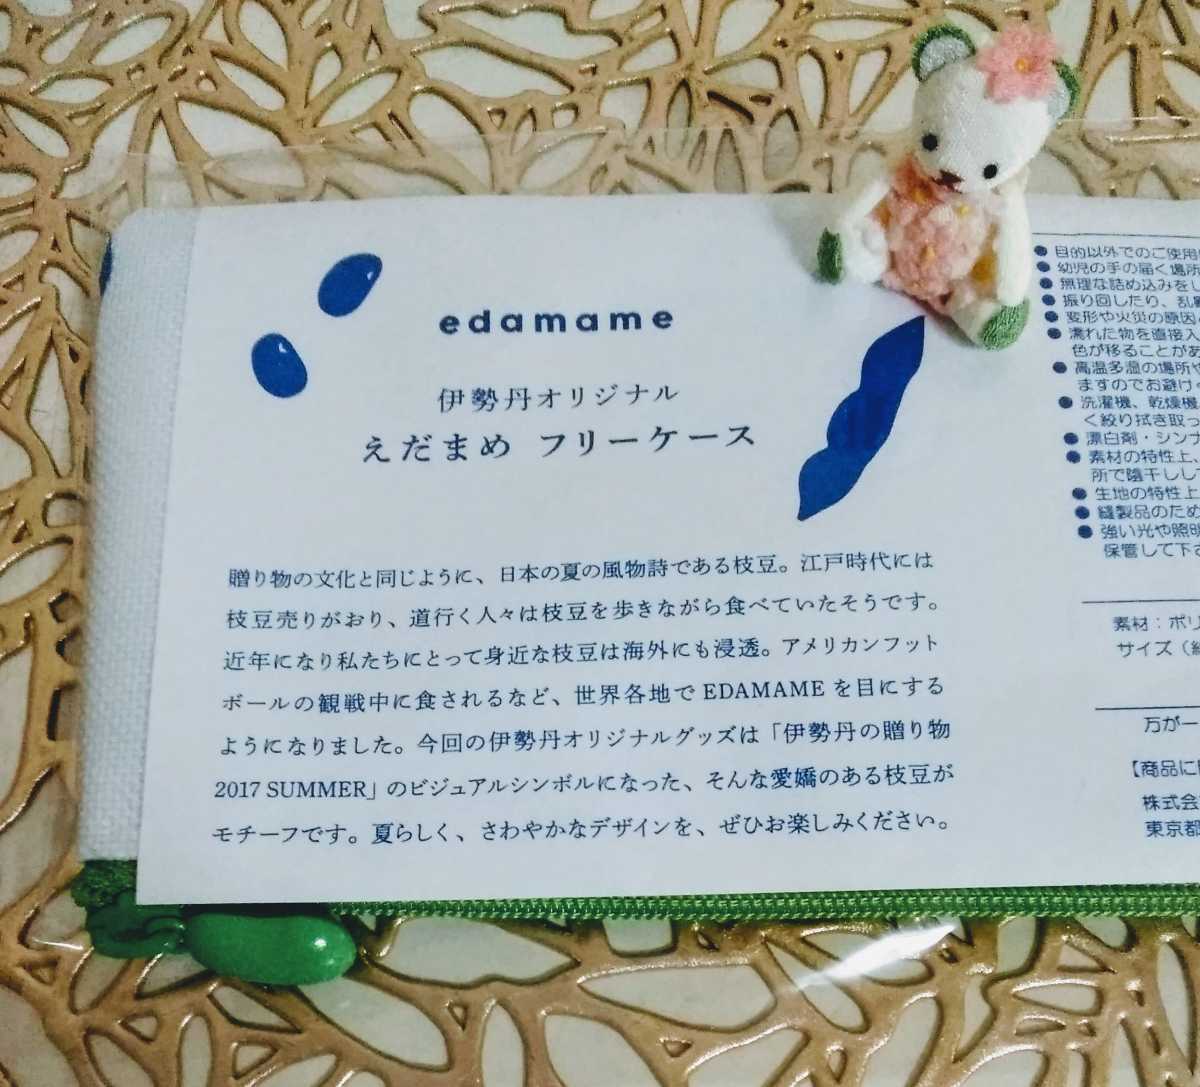 edamame
伊勢丹オリジナル
えだまめ フリーケース
贈り物の文化と同じように、日本の夏の風物詩である枝豆。江戸時代には
枝豆売りがおり、道行く人々は枝豆を歩きながら食べていたそうです。
近年になり私たちにとって身近な枝豆は海外にも浸透。アメリカンフット
ボールの観戦中に食されるなど、世界各地でEDAMAMEを目にする
ようになりました。今回の伊勢丹オリジナルグッズは「伊勢丹の贈り物
2017 SUMMER」のビジュアルシンボルになった、そんな愛嬌のある枝豆が
モチーフです。夏らしく、さわやかなデザインを、ぜひお楽しみください。
●目的以外でのご使用
●幼児の手の届く場所
●無理な詰め込みをし
●振り回したり、乱
●変形や火災の原因
●濡れた物を直接入
色が移ることがあ
●高温多湿の場所や
ますのでお避け
●洗濯機、乾燥機
く絞り拭き取っ
●漂白剤・シンナ
●素材の特性上、
所で陰干しし
●生地の特性上
●縫製品のため
●強い光や照明
保管して下さ
素材：ポリ
サイズ（
万が一
【商品に
株式会
東京都